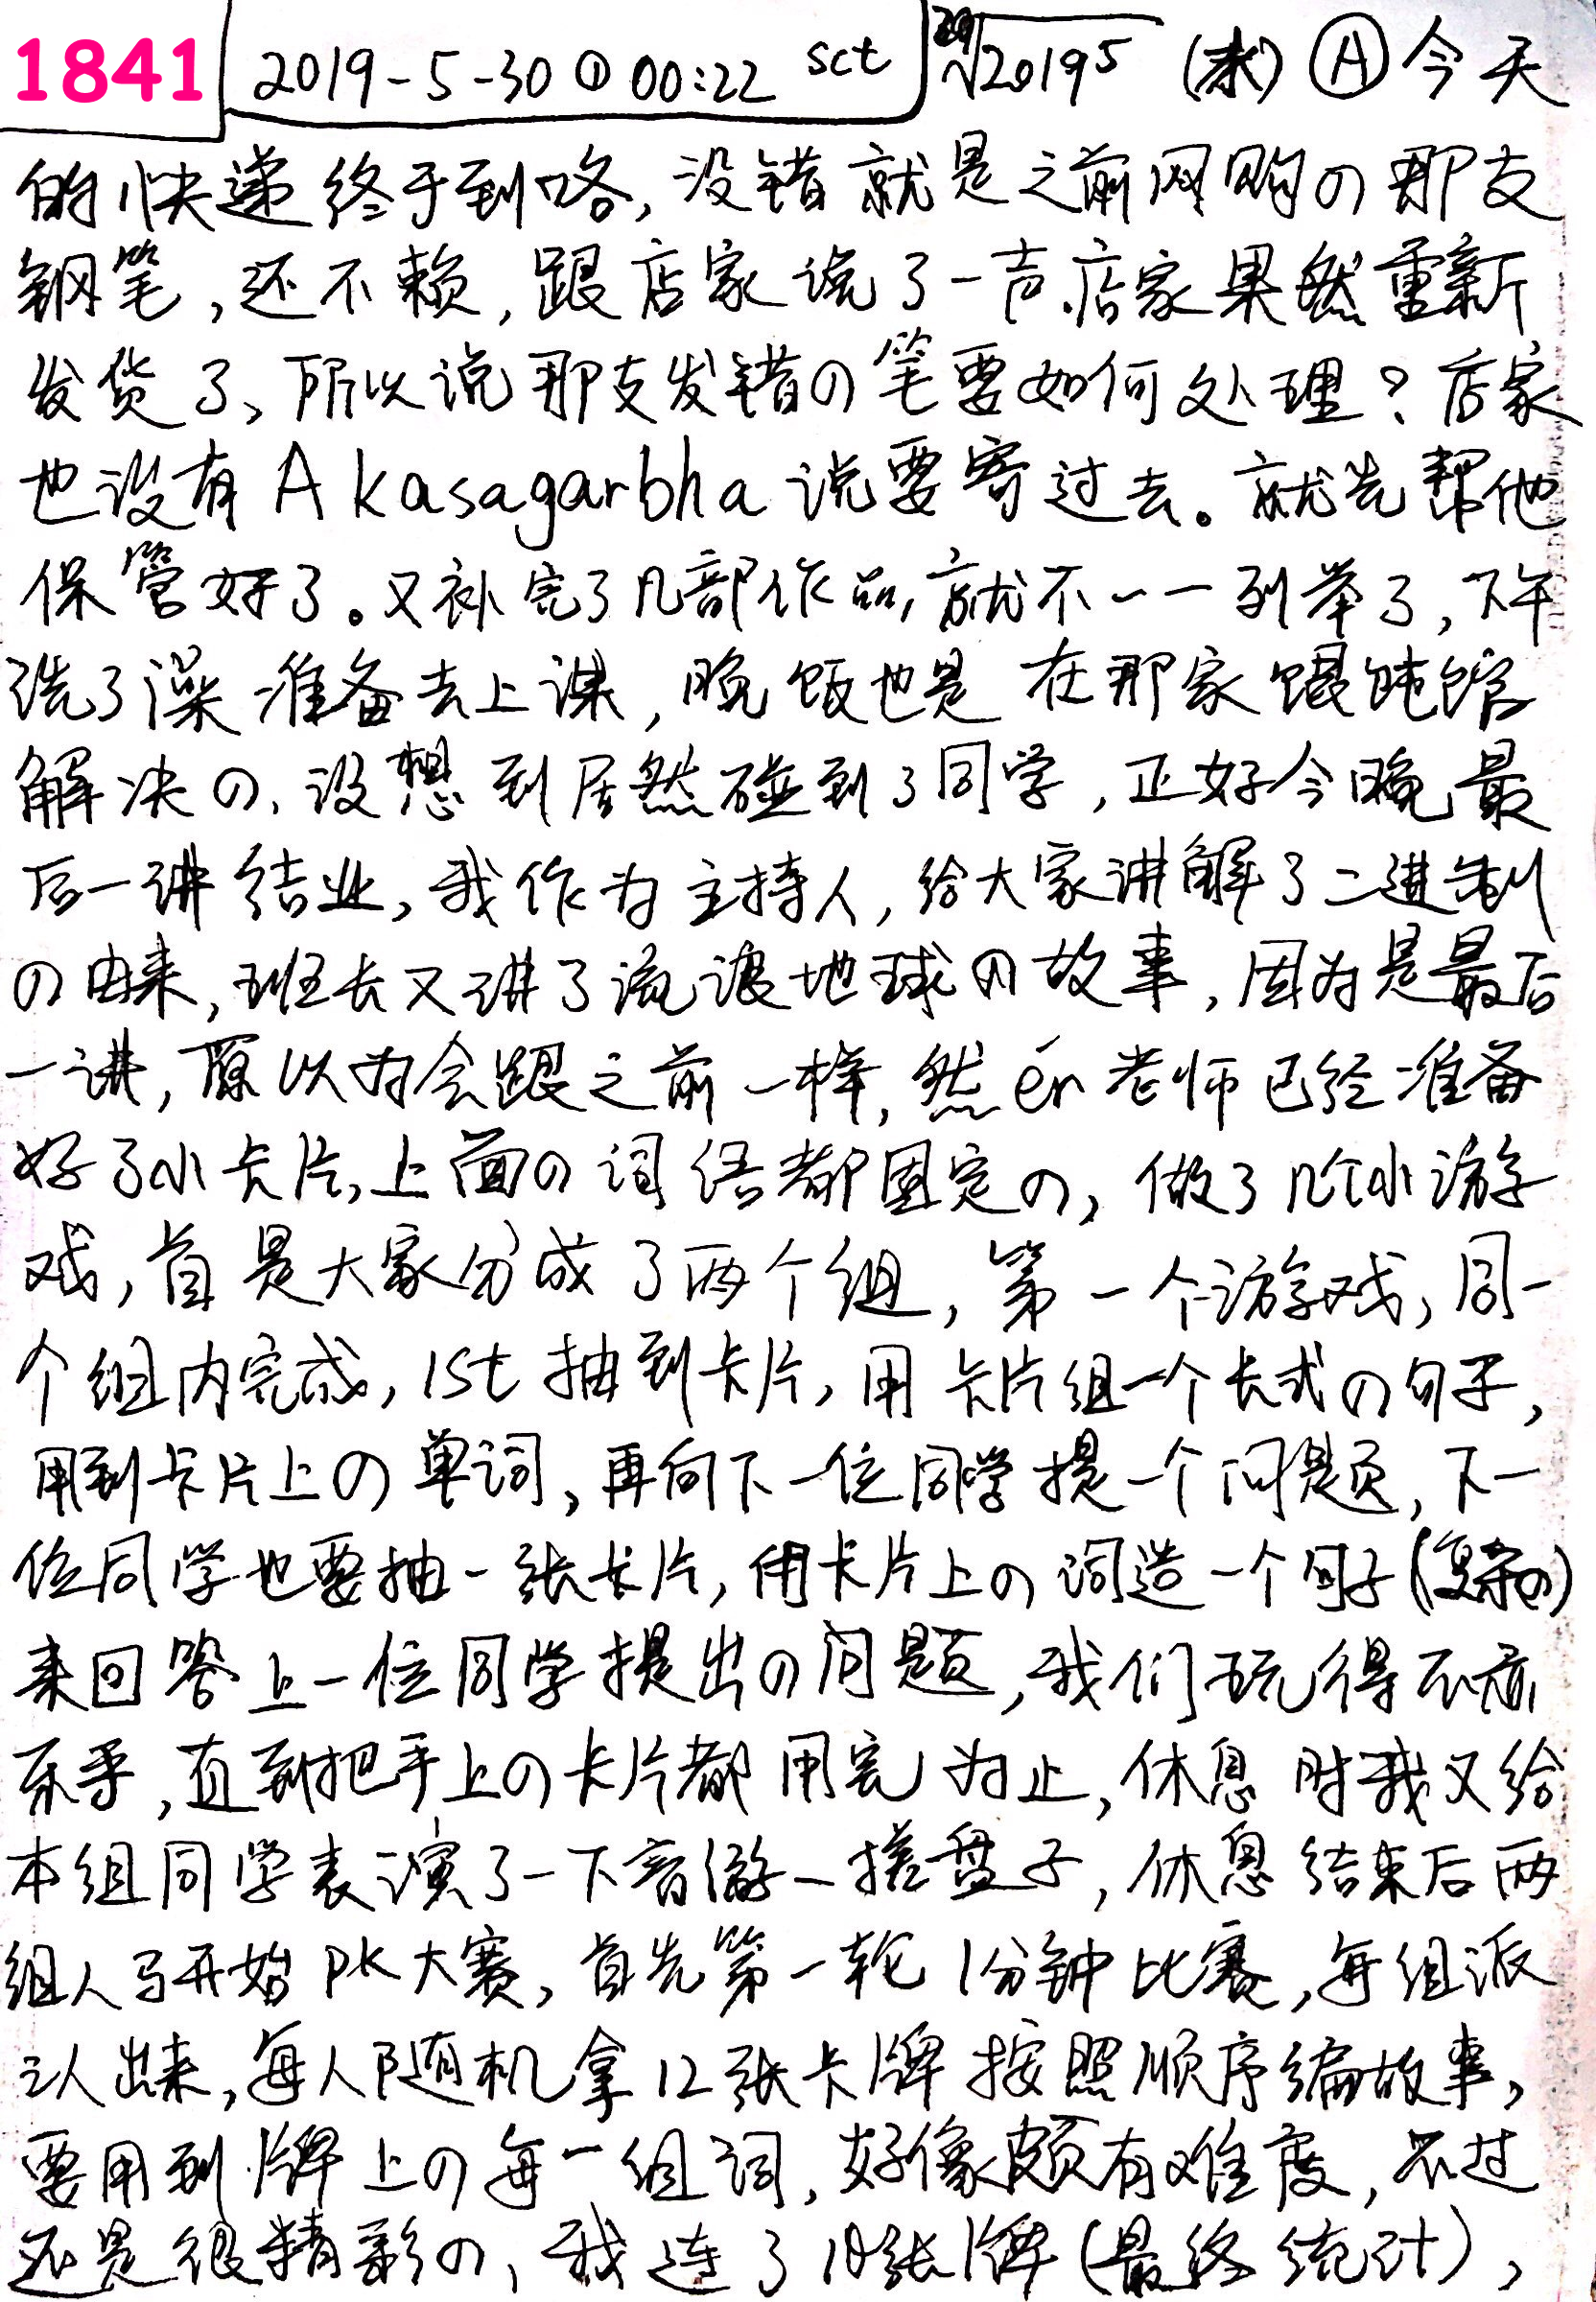 1841 2019-5-30 ① 00:22 sct ²⁹√2019⁵ (木) Ⓐ 今天
的快递终于到咯, 没错就是之前网购の那支
钢笔, 还不赖, 跟店家说了一声、店家果然重新
发货了、所以说那支发错の笔要如何处理? 店家
也没有 Akasagarbha 说要寄过去。就先帮他
保管好了。又补完了几部作品, 就不一一列举了, 下午
洗了澡准备去上课, 晚饭也是在那家馄饨馆
解决の、没想到居然碰到了同学, 正好今晚最
后一讲结业, 我作为主持人, 给大家讲解了二进制
の由来, 班长又讲了流浪地球の故事, 因为是最后
一讲, 原以为会跟之前一样, 然ér老师已经准备
好了小卡片, 上面の词语都固定の, 做了几个小游
戏, 首是大家分成了两个组, 第一个游戏, 同一
个组内完成, 1st 抽到卡片, 用卡片组一个长式の句子,
用到卡片上の单词, 再向下一位同学提一个问题, 下一
位同学也要抽一张卡片, 用卡片上の词造一个句子(复杂の)
来回答上一位同学提出の问题, 我们玩得不亦
乐乎, 直到把手上の卡片都用完为止, 休息时我又给
本组同学表演了一下音游—搓盘子, 休息结束后两
组人马开始PK大赛, 首先第一轮1分钟比赛, 每组派
3人出来, 每人随机拿12张卡牌按照顺序编故事,
要用到牌上の每一组词, 好像颇有难度, 不过
还是很精彩の, 我连了10张牌(最终统计),